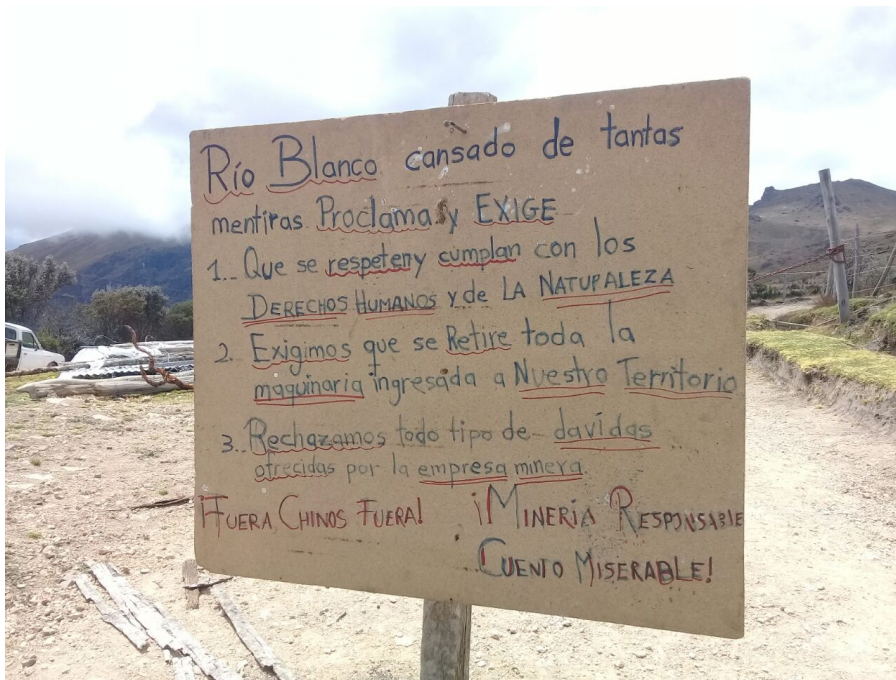 Río Blanco cansado de tantas
mentiras Proclama y EXIGE
1.. Que se respeten y cumplan con los
DERECHOS HUMANOS y de LA NATUPALEZA
2. Exigimos que se Retire toda la
maquinaria ingresada a Nuestro Territorio
3.. Rechazamos todo tipo de davidas
ofrecidas por la empresa minera.
FUERA CHINOS FUERA! ¡MINERÍA RESPONSABLE
CUENTO MISERABLE!